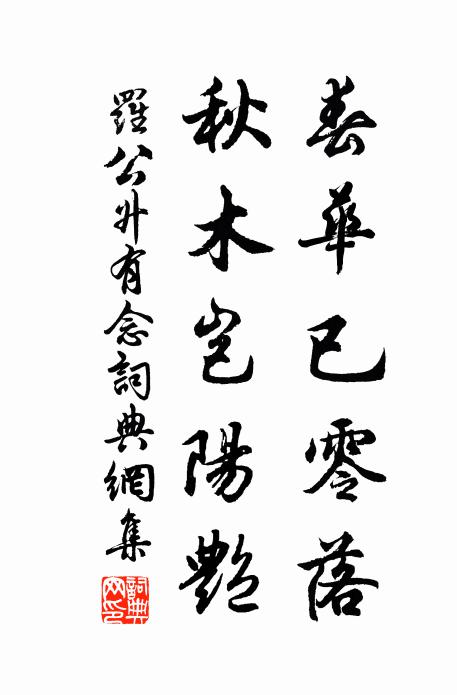 春華已零落
秋木岂陽艷
羅公升有念詞典網集
詞典网印